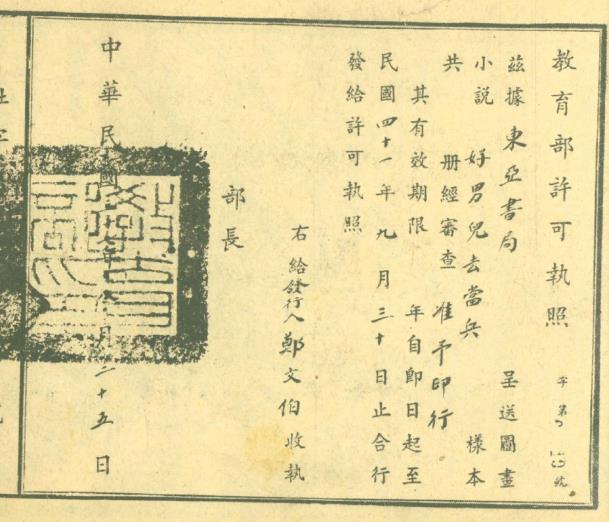 教育部許可執照
字第 號
茲據東亞書局 呈送圖畫
小説 好男兒去當兵 樣本
共 册經審查准予印行
其有效期限 年自即日起至
民國四十一年九月三十日止合行
發給許可執照
右給發行人鄭文伯收執
部長
中華民國 年 月二十五日